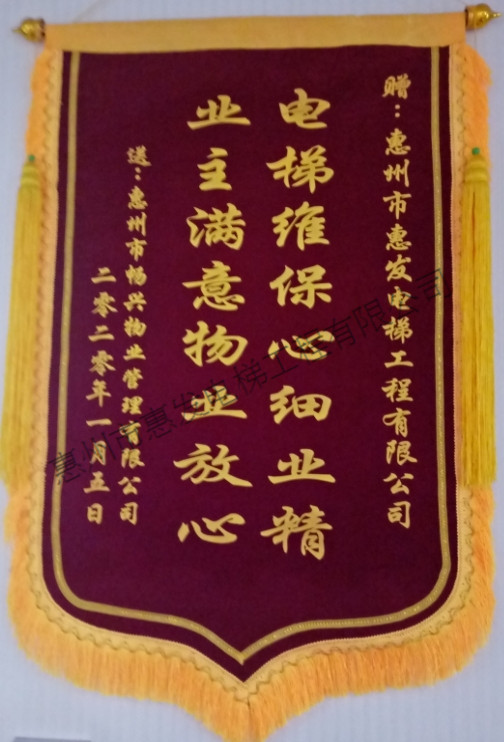 赠：惠州市惠发电梯工程有限公司
电梯维保心细业精
业主满意物业放心
送：惠州市杨兴物业管理有限公司
二零二零年一月五日
惠州市惠发电梯工程有限公司